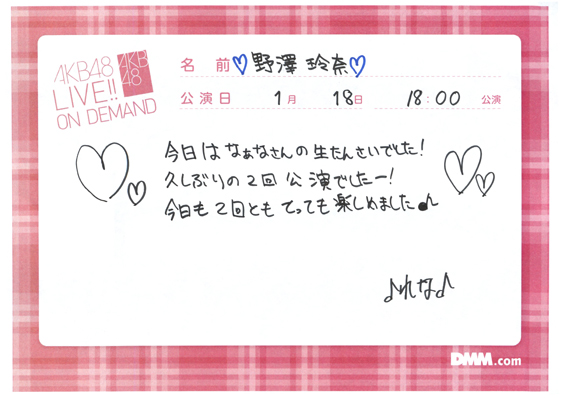 AKB48
LIVE!!
ON DEMAND
AKB
48
名 前 ♡野澤 玲奈♡
公演日 1月 18日 18:00 公演
今日はなぁなさんの生たんさいでした!
久しぶりの2回公演でしたー!
今日も2回ともとっても楽しめました♪
♪れな♪
DMM.com